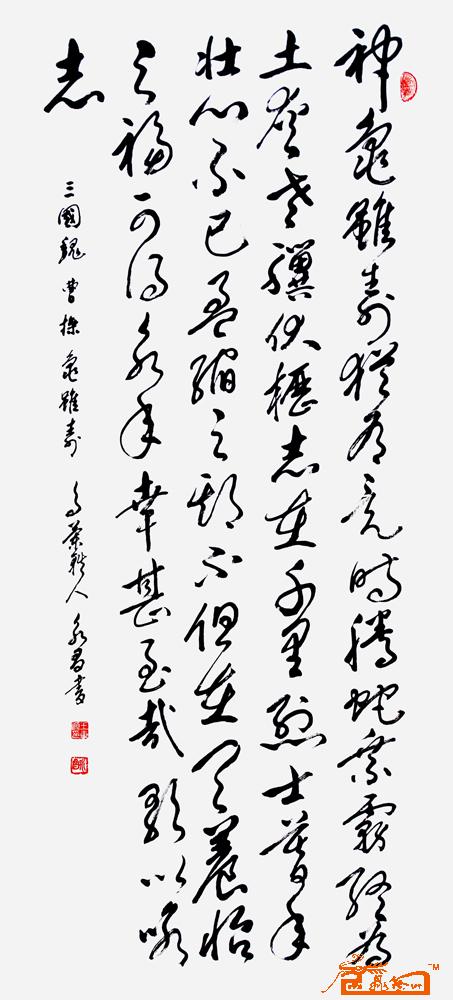 神龜雖壽猶有竟時騰蛇乘霧終為
土灰老驥伏櫪志在千里烈士暮年
壯心不已盈縮之期不但在天養怡
之福可得永年幸甚至哉歌以咏
志
三國魏曹操龜雖壽 人永昌書